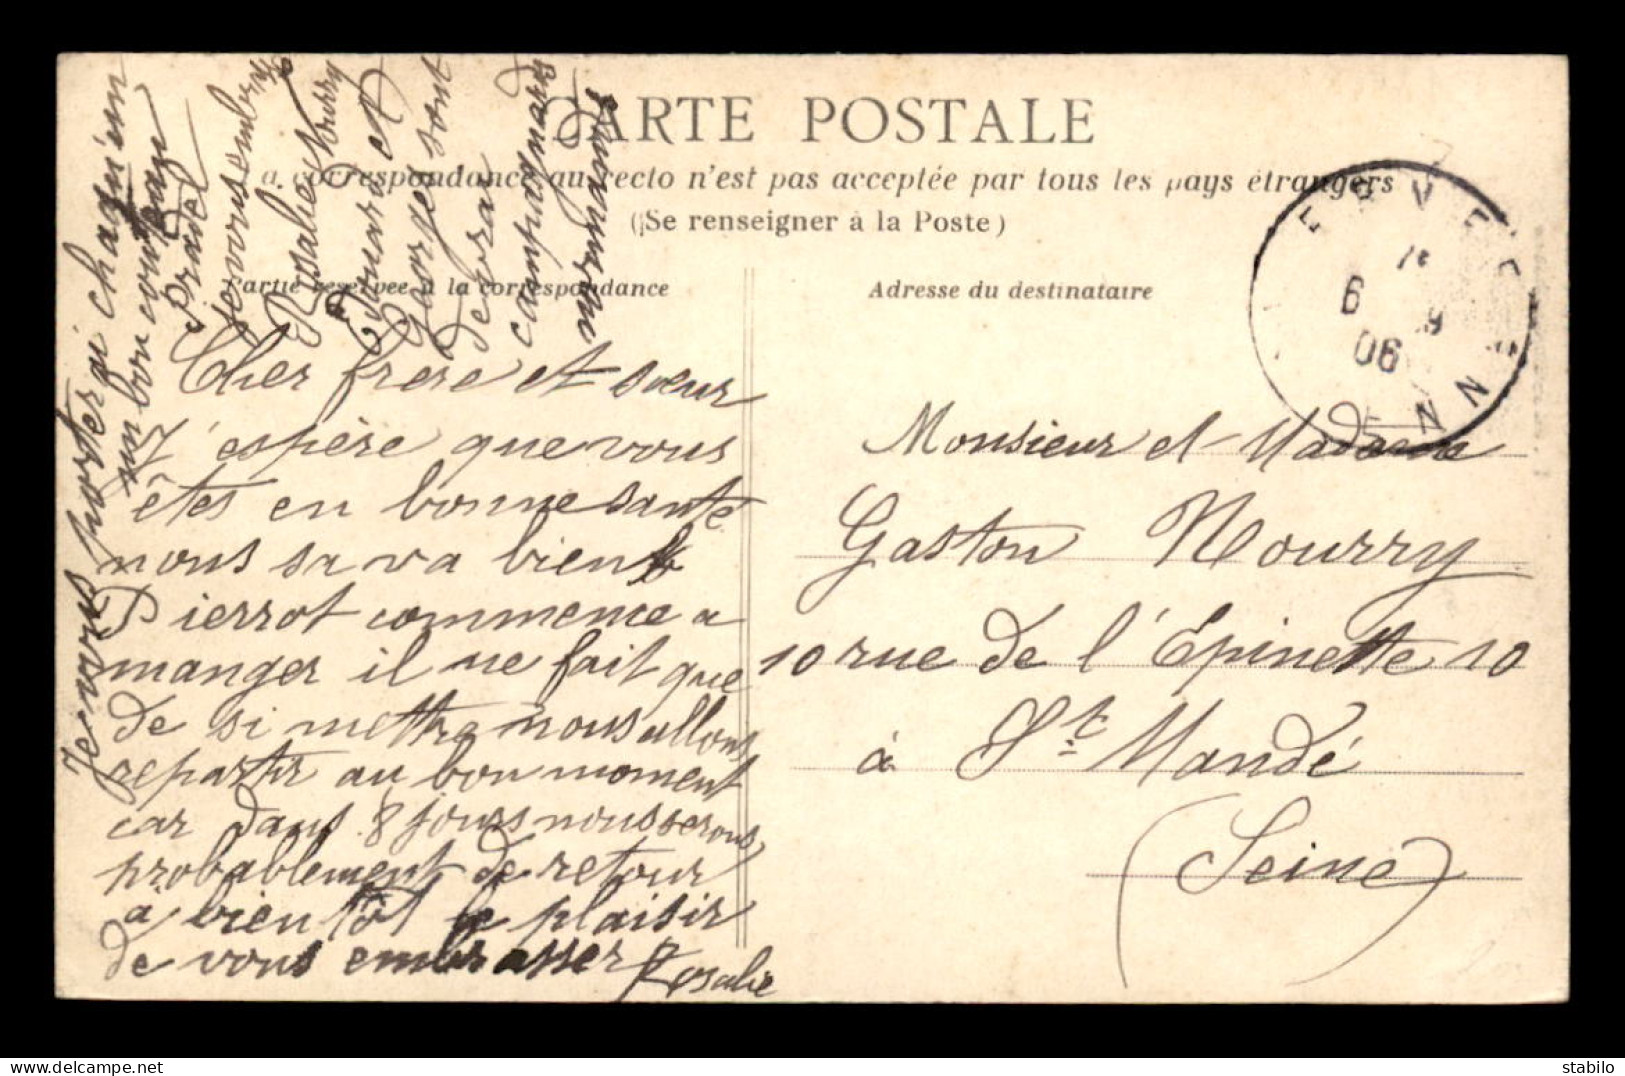 CARTE POSTALE
La correspondance au recto n'est pas acceptée par tous les pays étrangers
(Se renseigner à la Poste)
Partie réservée à la correspondance
Adresse du destinataire
6
9
06
Cher frere et sœur
J'espère que vous
êtes en bonne santé
nous sa va bien
Pierrot commence a
manger il ne fait que
de si mettre nous allons
repartir au bon moment
car dans 8 jours nous serons
probablement de retour
à bientôt le plaisir
de vous embrasser Rosalie
Je vous porterai chacun un
un bon
je vous embrasse
Rosalie Nourry
Edouard et
George sont
de vrai
campagnards
normands
Monsieur et Madame
Gaston Nourry
10 rue de l'Epinette 10
à St Mandé
(Seine)
stabilo
Delcampe.net